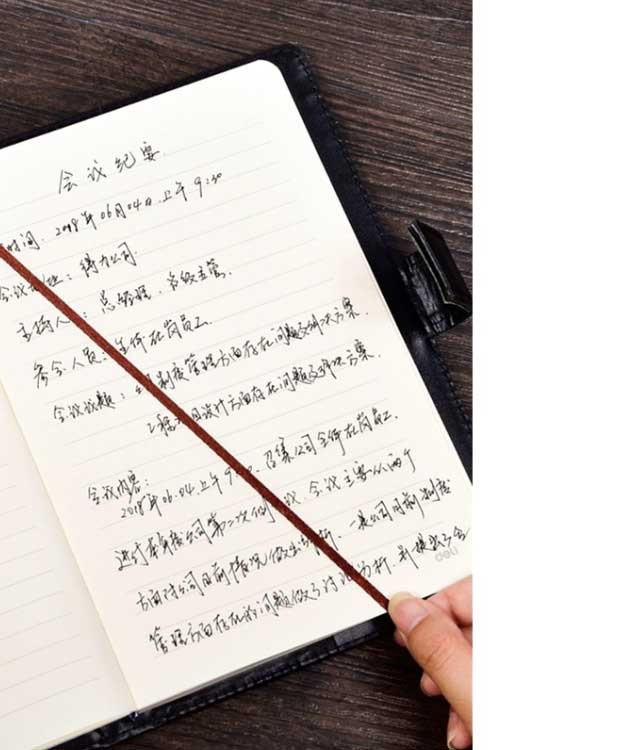 会议纪要
时间: 2018年06月04日上午9:30
会议地址: 得力公司
主持人: 总经理、各级主管.
参会人员: 全体在岗员工.
会议议题: 制度管理方面存在问题及解决方案.
2. 设计方面存在问题及解决方案.
会议内容:
2018年06.04上午9 召集公司全体在岗员工.
进行本年度公司第二次 会议.会议主要从两个
方面对公司目前情况做出分析.一是公司目前制度
管理方面存在的问题做了讨论分析.并提出了会
deli